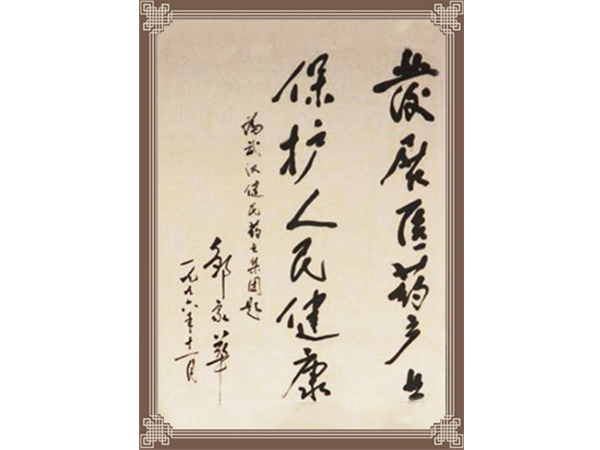 發展医药产业
保护人民健康
为武汉健民药业集团题
邹家华
一九九六年十一月